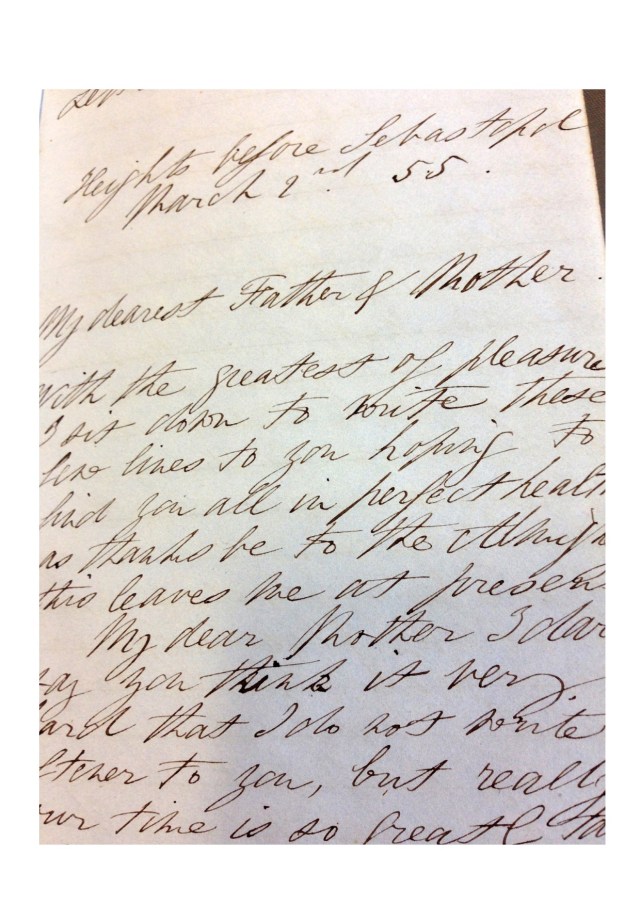 Heights before Sebastopol
March 2nd 55.
My dearest Father & Mother.
with the greatest of pleasure
I sit down to write these
few lines to you hoping to
find you all in perfect health
as thanks be to the Almigh
this leaves me at presen
My dear Mother I dar
say you think it very
hard that I do not write
oftener to you, but really
our time is so greatl ta